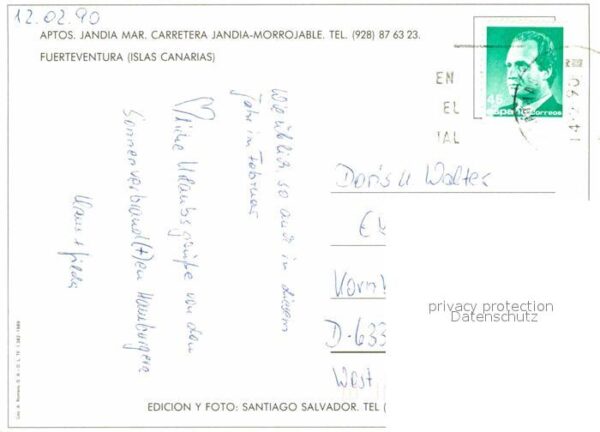 12.02.90
APTOS. JANDIA MAR. CARRETERA JANDIA-MORROJABLE. TEL. (928) 87 63 23.
FUERTEVENTURA (ISLAS CANARIAS)
EN
EL
IAL
45
España correos
Wie üblich, so auch in diesem
Jahr im Februar
Urlaubsgrüße von den
Sonnenverbrand(t)en Hamburgern
Klaus + Hilda
Doris u. Walter
D-633
West
privacy protection
Datenschutz
EDICION Y FOTO: SANTIAGO SALVADOR. TEL (